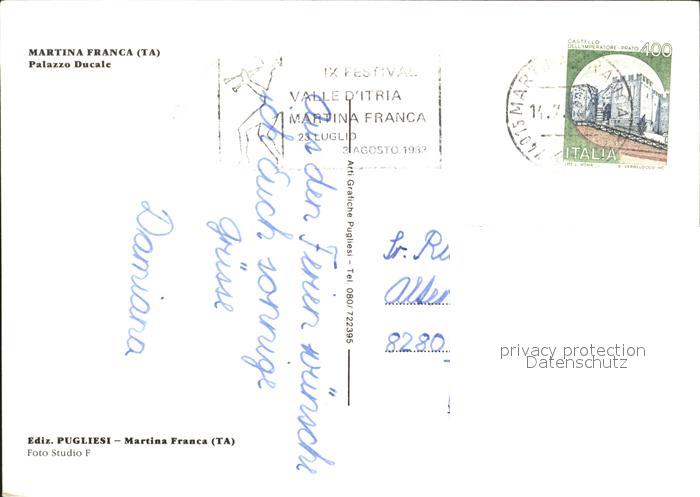 MARTINA FRANCA (TA)
Palazzo Ducale
IX FESTIVAL
VALLE D'ITRIA
MARTINA FRANCA
23 LUGLIO
3 AGOSTO 1983
74015 MARTINA FRANCA
14.7
CASTELLO
DELL'IMPERATORE - PRATO
400
ITALIA
Aus den Ferien wünsche
ich Euch sonnige
grüsse
Damiana
Arti Grafiche Pugliesi – Tel. 080/722395
8280
privacy protection
Datenschutz
Ediz. PUGLIESI – Martina Franca (TA)
Foto Studio F